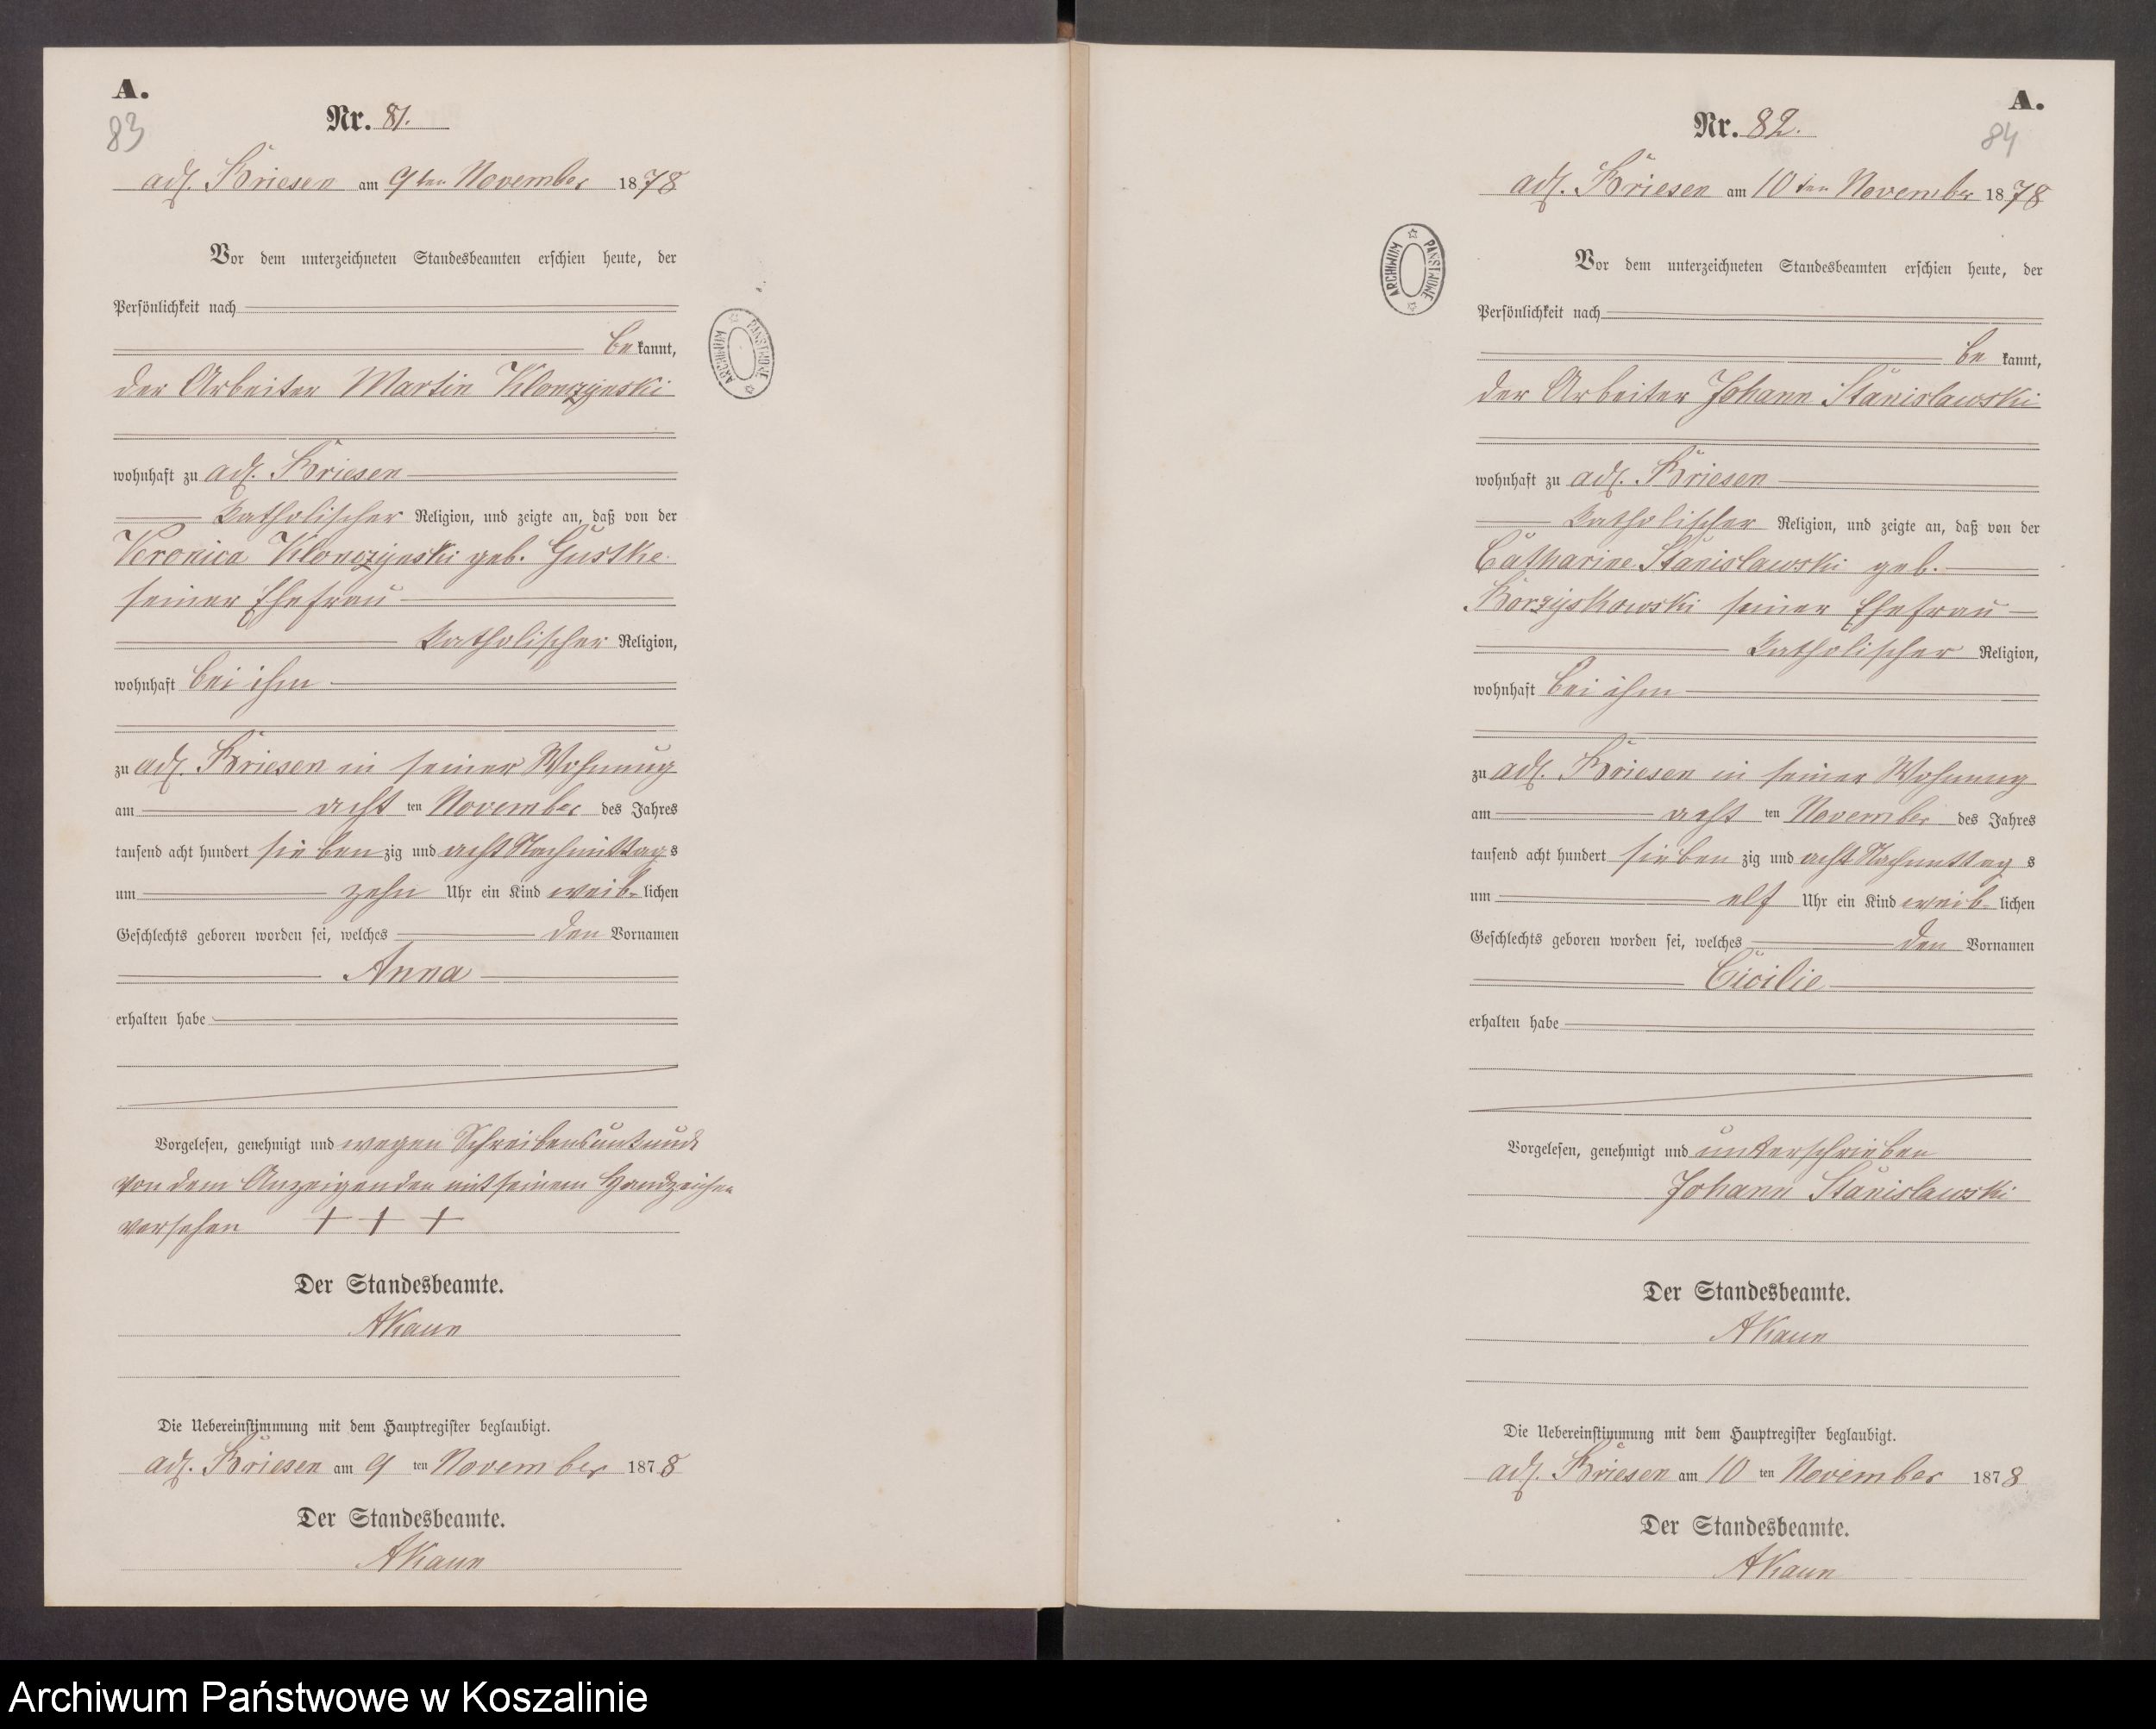 A.
83
Nr. 81.
adl. Briesen am 9ten November 1878
Vor dem unterzeichneten Standesbeamten erschien heute, der
Persönlichkeit nach
bekannt,
der Arbeiter Martin Klonczynski
wohnhaft zu adl. Briesen
katholischer Religion, und zeigte an, daß von der
Veronica Klonczynski geb. Gustke
seiner Ehefrau
katholischer Religion,
wohnhaft bei ihm
zu adl. Briesen in seiner Wohnung
am acht ten November des Jahres
tausend acht hundert siebenzig und acht Nachmittags
um zehn Uhr ein Kind weib-lichen
Geschlechts geboren worden sei, welches den Vornamen
Anna
erhalten habe
Vorgelesen, genehmigt und wegen Schreibensunkunde
von dem Anzeigenden mit seinem Handzeichen
versehen + + +
Der Standesbeamte.
AKaun
Die Uebereinstimmung mit dem Hauptregister beglaubigt.
adl. Briesen am 9 ten November 1878
Der Standesbeamte.
AKaun
ARCHIWUM PAŃSTWOWE
A.
84
Nr. 82.
adl. Briesen am 10ten November 1878
Vor dem unterzeichneten Standesbeamten erschien heute, der
Persönlichkeit nach
be kannt,
der Arbeiter Johann Stanislawski
wohnhaft zu adl. Briesen
katholischer Religion, und zeigte an, daß von der
Catharine Stanislawski geb.
Borzyskowski seiner Ehefrau
katholischer Religion,
wohnhaft bei ihm
zu adl. Briesen in seiner Wohnung
am acht ten November des Jahres
tausend acht hundert sieben zig und acht Nachmittag s
um elf Uhr ein Kind weib- lichen
Geschlechts geboren worden sei, welches den Vornamen
Cicilie
erhalten habe
Vorgelesen, genehmigt und unterschrieben
Johann Stanislawski
Der Standesbeamte.
AKaun
Die Uebereinstimmung mit dem Hauptregister beglaubigt.
adl. Briesen am 10 ten November 1878
Der Standesbeamte.
AKaun
ARCHIWUM PAŃSTWOWE
Archiwum Państwowe w Koszalinie